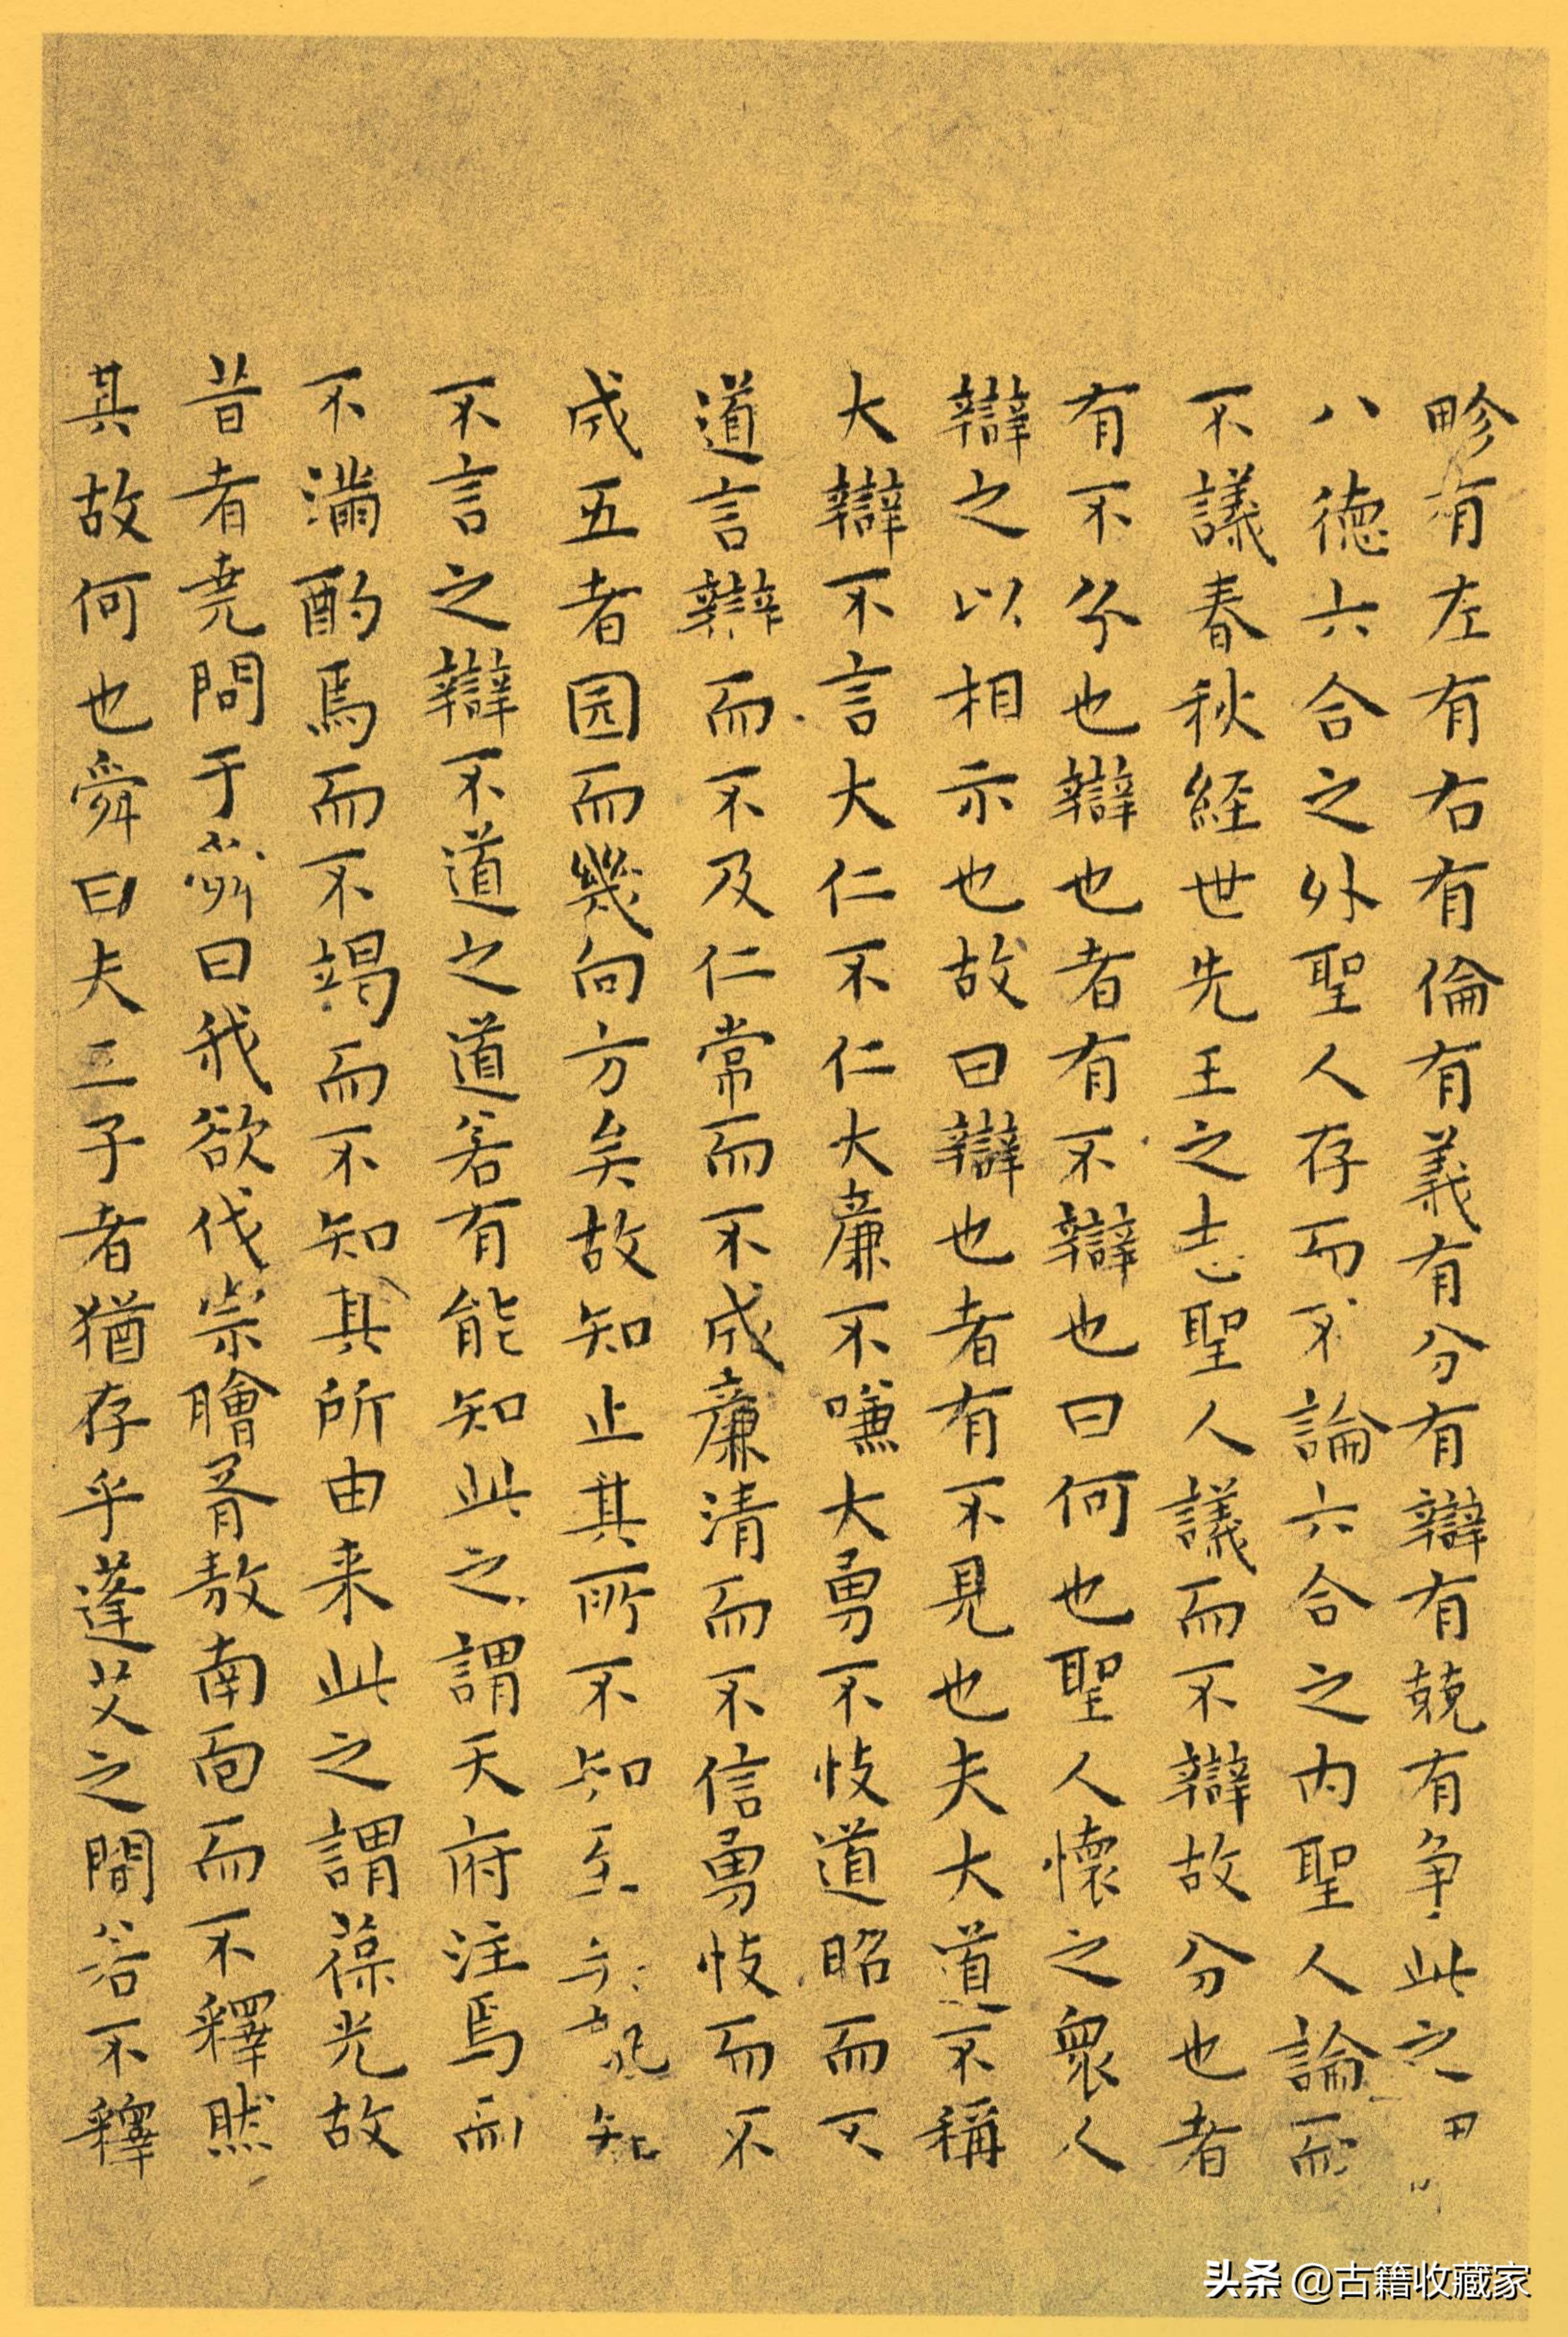 畛有左有右有倫有義有分有辯有競有争此之
八德六合之外聖人存而不論六合之内聖人論而
不議春秋経世先王之志聖人議而不辯故分也者
有不分也辯也者有不辯也曰何也聖人懷之衆人
辯之以相示也故曰辯也者有不見也夫大道不稱
大辯不言大仁不仁大廉不嗛大勇不忮道昭而不
道言辯而不及仁常而不成廉清而不信勇忮而不
成五者园而幾向方矣故知止其所不知至知
不言之辯不道之道若有能知此之謂天府注焉而
不滿酌焉而不竭而不知其所由来此之謂葆光故
昔者尭問于舜曰我欲伐宗膾胥敖南面而不釋然
其故何也舜曰夫三子者猶存乎蓬艾之間若不釋
头条 @古籍收藏家